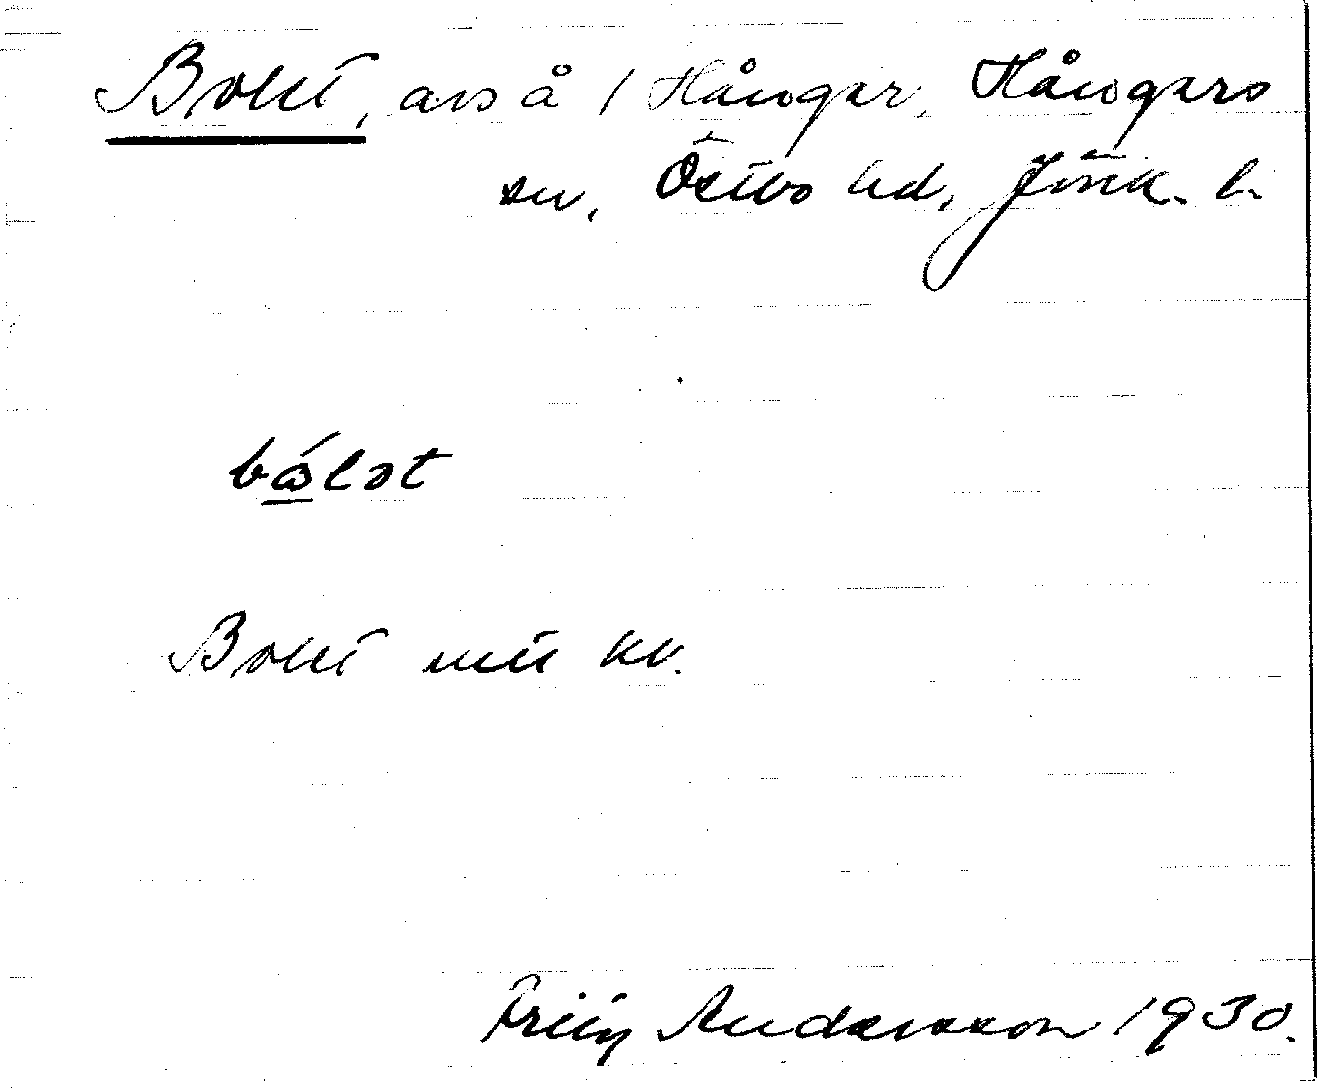 Bolet, avs å / Hånger, Hångers
sn, Östbo hd, Jönk. l.
bώlət
Bolet kv.
Fritz Andersson 1930.